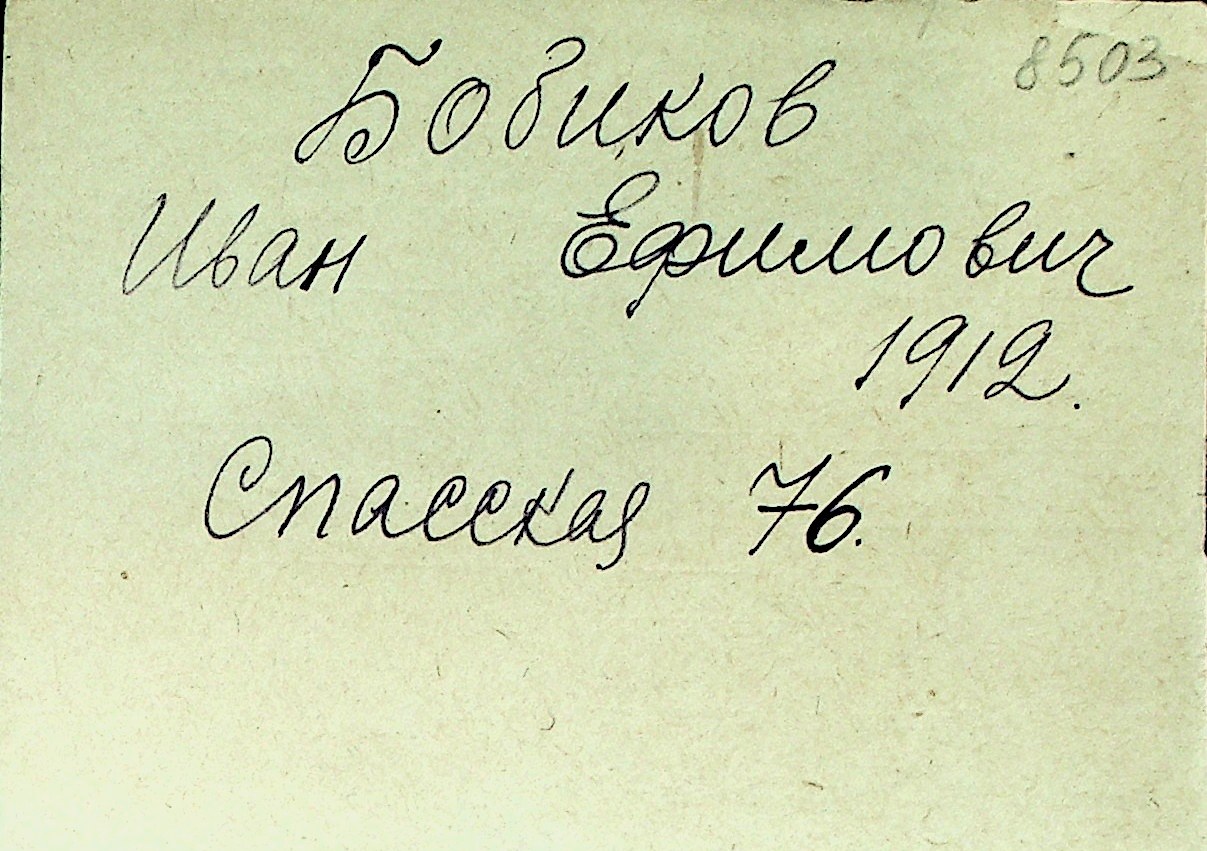 8503
Бобиков
Иван Ефимович
1912.
Спасская 76.